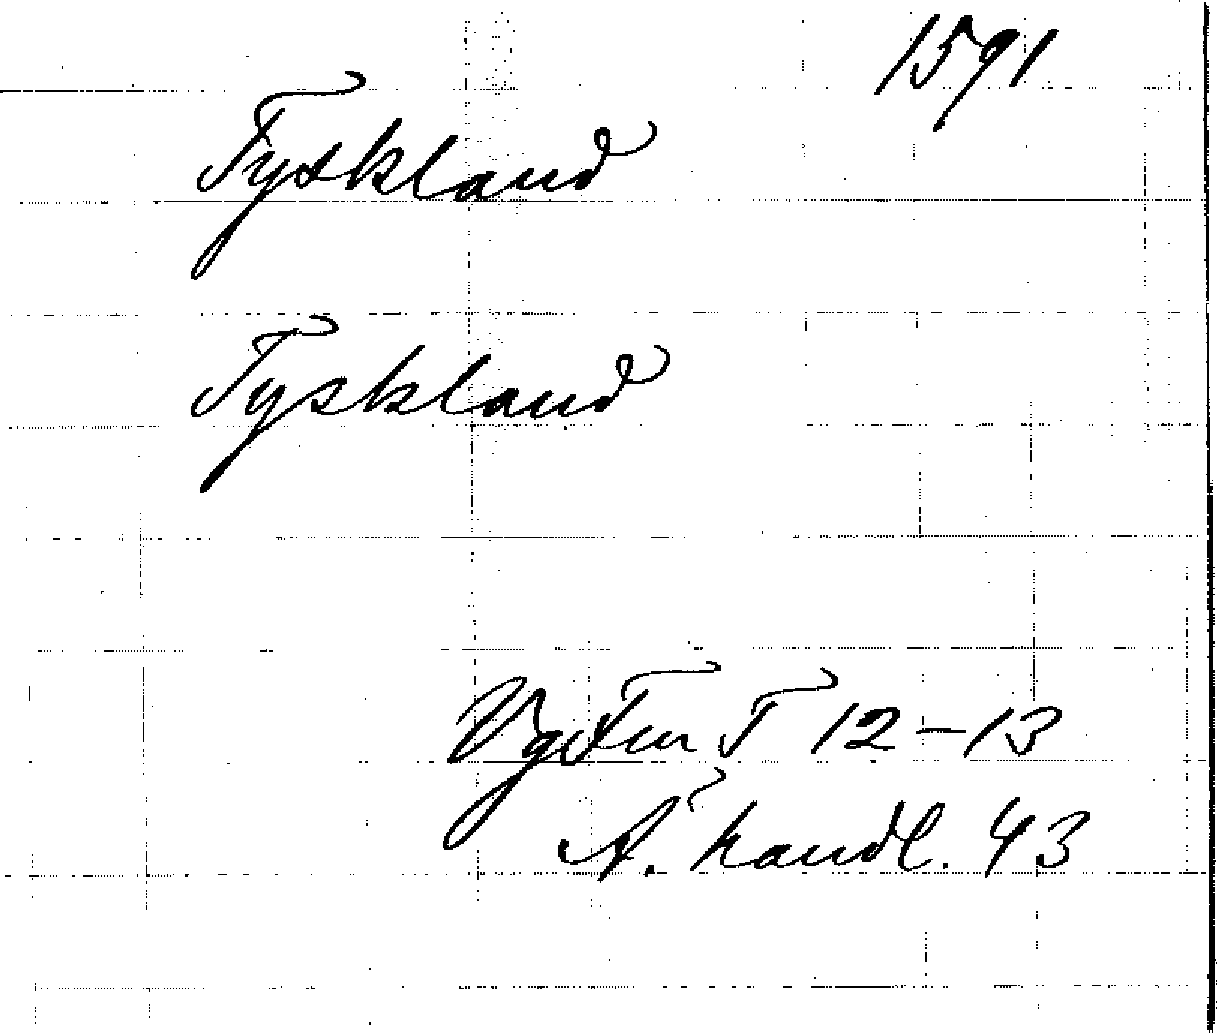 1591
Tyskland
Tyskland
T 12-13
Ä. handl. 43